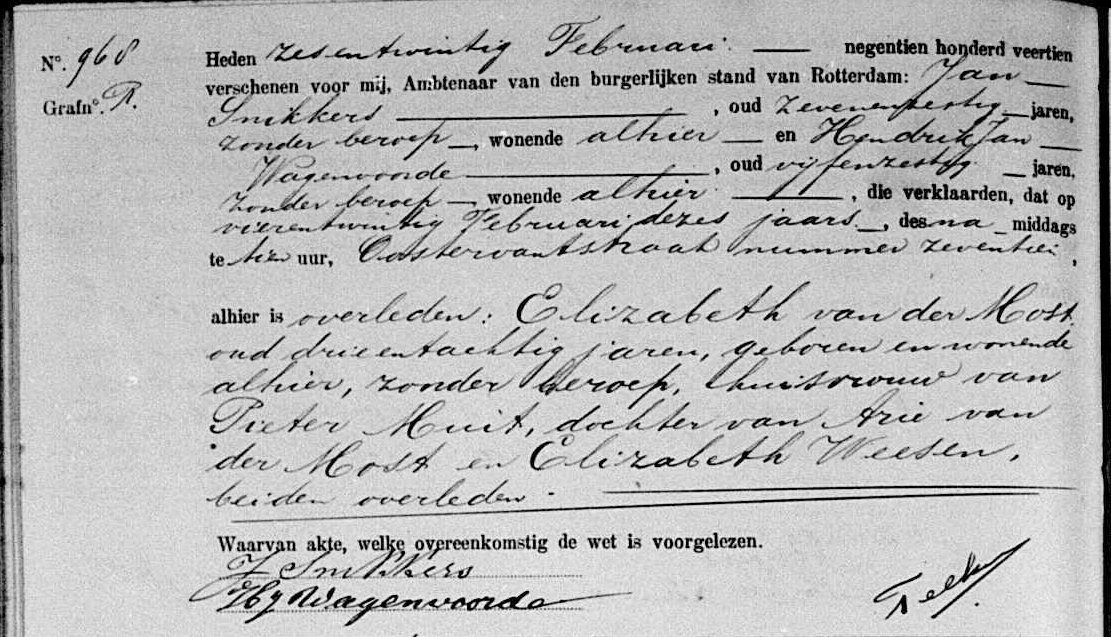 Nº. 968
Grafnº. R.
Heden zesentwintig Februari negentien honderd veertien
verschenen voor mij, Ambtenaar van den burgerlijken stand van Rotterdam: Jan
Snikkers, oud zevenenzestig jaren,
zonder beroep, wonende alhier en Hendrik Jan
Wagenvoorde, oud vijfenzestig jaren,
zonder beroep, wonende alhier, die verklaarden, dat op
vierentwintig Februari dezes jaars, des na middags
te tien uur, Oostervantstraat nummer zeventien,
alhier is overleden: Elizabeth van der Most
oud drieentachtig jaren, geboren en wonende
alhier, zonder beroep, huisvrouw van
Pieter Muit, dochter van Arie van
der Most en Elizabeth Weesen,
beiden overleden.
Waarvan akte, welke overeenkomstig de wet is voorgelezen.
J Snikkers
HJ Wagenvoorde